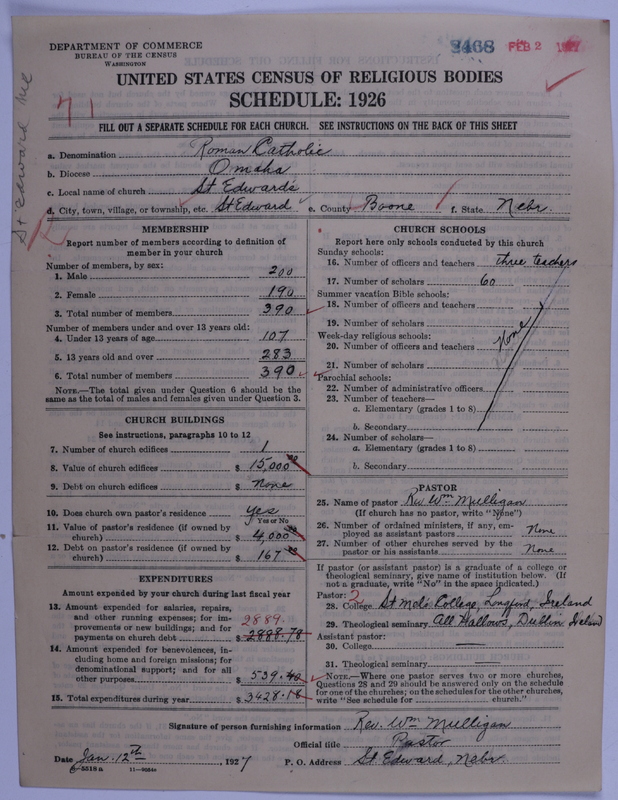 DEPARTMENT OF COMMERCE
BUREAU OF THE CENSUS
WASHINGTON
3468 FEB 2 1927
St Edward Ne
71
UNITED STATES CENSUS OF RELIGIOUS BODIES
SCHEDULE: 1926
FILL OUT A SEPARATE SCHEDULE FOR EACH CHURCH. SEE INSTRUCTIONS ON THE BACK OF THIS SHEET
a. Denomination Roman Catholic
b. Diocese Omaha
c. Local name of church St Edward's
d. City, town, village, or township, etc. St Edward e. County Boone f. State Nebr.
MEMBERSHIP
Report number of members according to definition of member in your church
Number of members, by sex:
1. Male 200
2. Female 190
3. Total number of members 390
Number of members under and over 13 years old:
4. Under 13 years of age 107
5. 13 years old and over 283
6. Total number of members 390
NOTE.—The total given under Question 6 should be the
same as the total of males and females given under Question 3.
CHURCH BUILDINGS
See instructions, paragraphs 10 to 12
7. Number of church edifices 1
8. Value of church edifices $ 15,000.00
9. Debt on church edifices $ None
10. Does church own pastor's residence Yes
Yes or No
11. Value of pastor's residence (if owned by
church) $ 4,000.00
12. Debt on pastor's residence (if owned by
church) $ 167.00
EXPENDITURES
Amount expended by your church during last fiscal year
13. Amount expended for salaries, repairs,
and other running expenses; for im-
provements or new buildings; and for
payments on church debt $ 2888.78
2889.
14. Amount expended for benevolences, in-
cluding home and foreign missions; for
denominational support; and for all
other purposes $ 539.40
15. Total expenditures during year $ 3428.18
CHURCH SCHOOLS
Report here only schools conducted by this church
Sunday schools:
16. Number of officers and teachers three teachers
17. Number of scholars 60
Summer vacation Bible schools:
18. Number of officers and teachers
19. Number of scholars
None
Week-day religious schools:
20. Number of officers and teachers
21. Number of scholars
Parochial schools:
22. Number of administrative officers
23. Number of teachers—
a. Elementary (grades 1 to 8)
b. Secondary
24. Number of scholars—
a. Elementary (grades 1 to 8)
b. Secondary
PASTOR
25. Name of pastor Rev Wm Mulligan
(If church has no pastor, write "None")
26. Number of ordained ministers, if any, em-
ployed as assistant pastors None
27. Number of other churches served by the
pastor or his assistants None
If pastor (or assistant pastor) is a graduate of a college or
theological seminary, give name of institution below. (If
not a graduate, write "No" in the space indicated.)
Pastor: 2
28. College St Mel's College, Longford, Ireland
29. Theological seminary All Hallows, Dublin Ireland
Assistant pastor:
30. College
31. Theological seminary
NOTE.—Where one pastor serves two or more churches,
Questions 28 and 29 should be answered only on the schedule
for one of the churches; on the schedules for the other churches,
write "See schedule for church."
Signature of person furnishing information Rev. Wm Mulligan
Official title Pastor
Date Jan. 12th 1927 P. O. Address St. Edward, Nebr.
5518a 11—9064